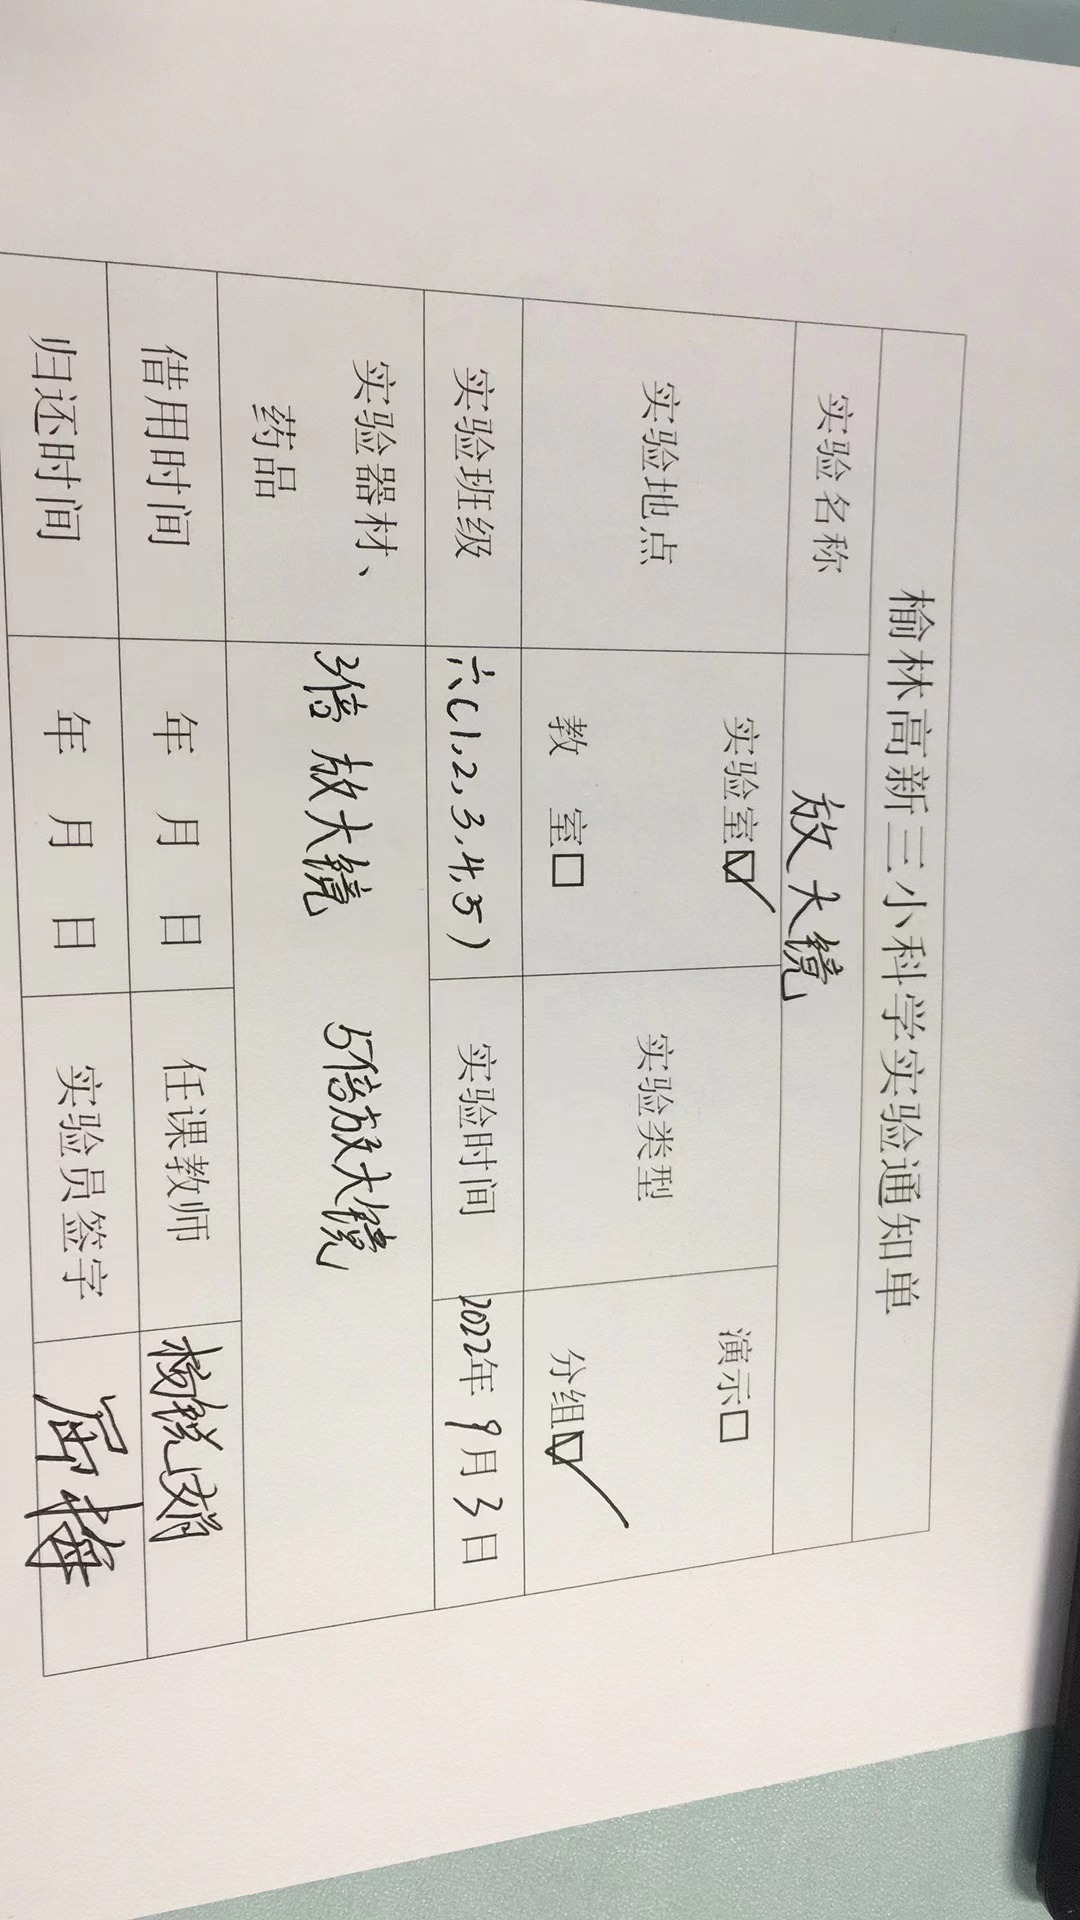 榆林高新三小科学实验通知单
实验名称 放大镜
实验地点 实验室☑ 教 室□ 实验类型 演示□ 分组☑
实验班级 六(1,2,3,4,5) 实验时间 2022年9月3日
实验器材、药品 3倍放大镜 5倍放大镜
借用时间 年 月 日 任课教师
归还时间 年 月 日 实验员签字 屈梅